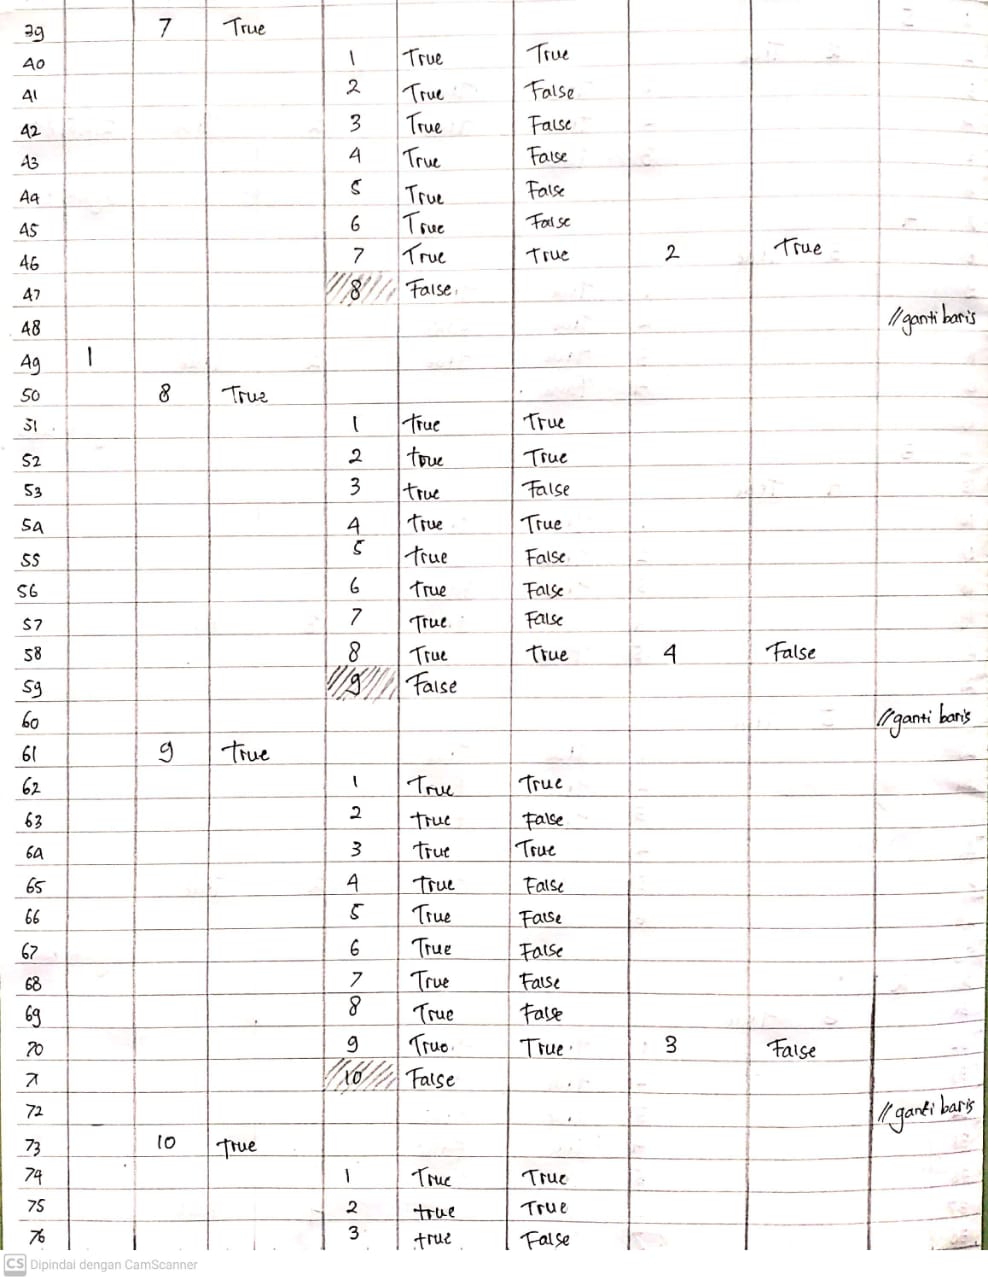 39 7 True
40 1 True True
41 2 True False
42 3 True False
43 4 True False
44 5 True False
45 6 True False
46 7 True True 2 True
47 8 False.
48 //ganti baris
49 1
50 8 True
51 1 True True
52 2 true True
53 3 true False
54 4 true True
55 5 true False
56 6 true False
57 7 True False
58 8 True True 4 False
59 9 False
60 //ganti baris
61 9 True
62 1 True True
63 2 true False
64 3 true True
65 4 True False
66 5 True False
67 6 True False
68 7 True False
69 8 True False
70 9 True True 3 False
71 10 False
72 //ganti baris
73 10 True
74 1 True True
75 2 true True
76 3 true False
CS Dipindai dengan CamScanner